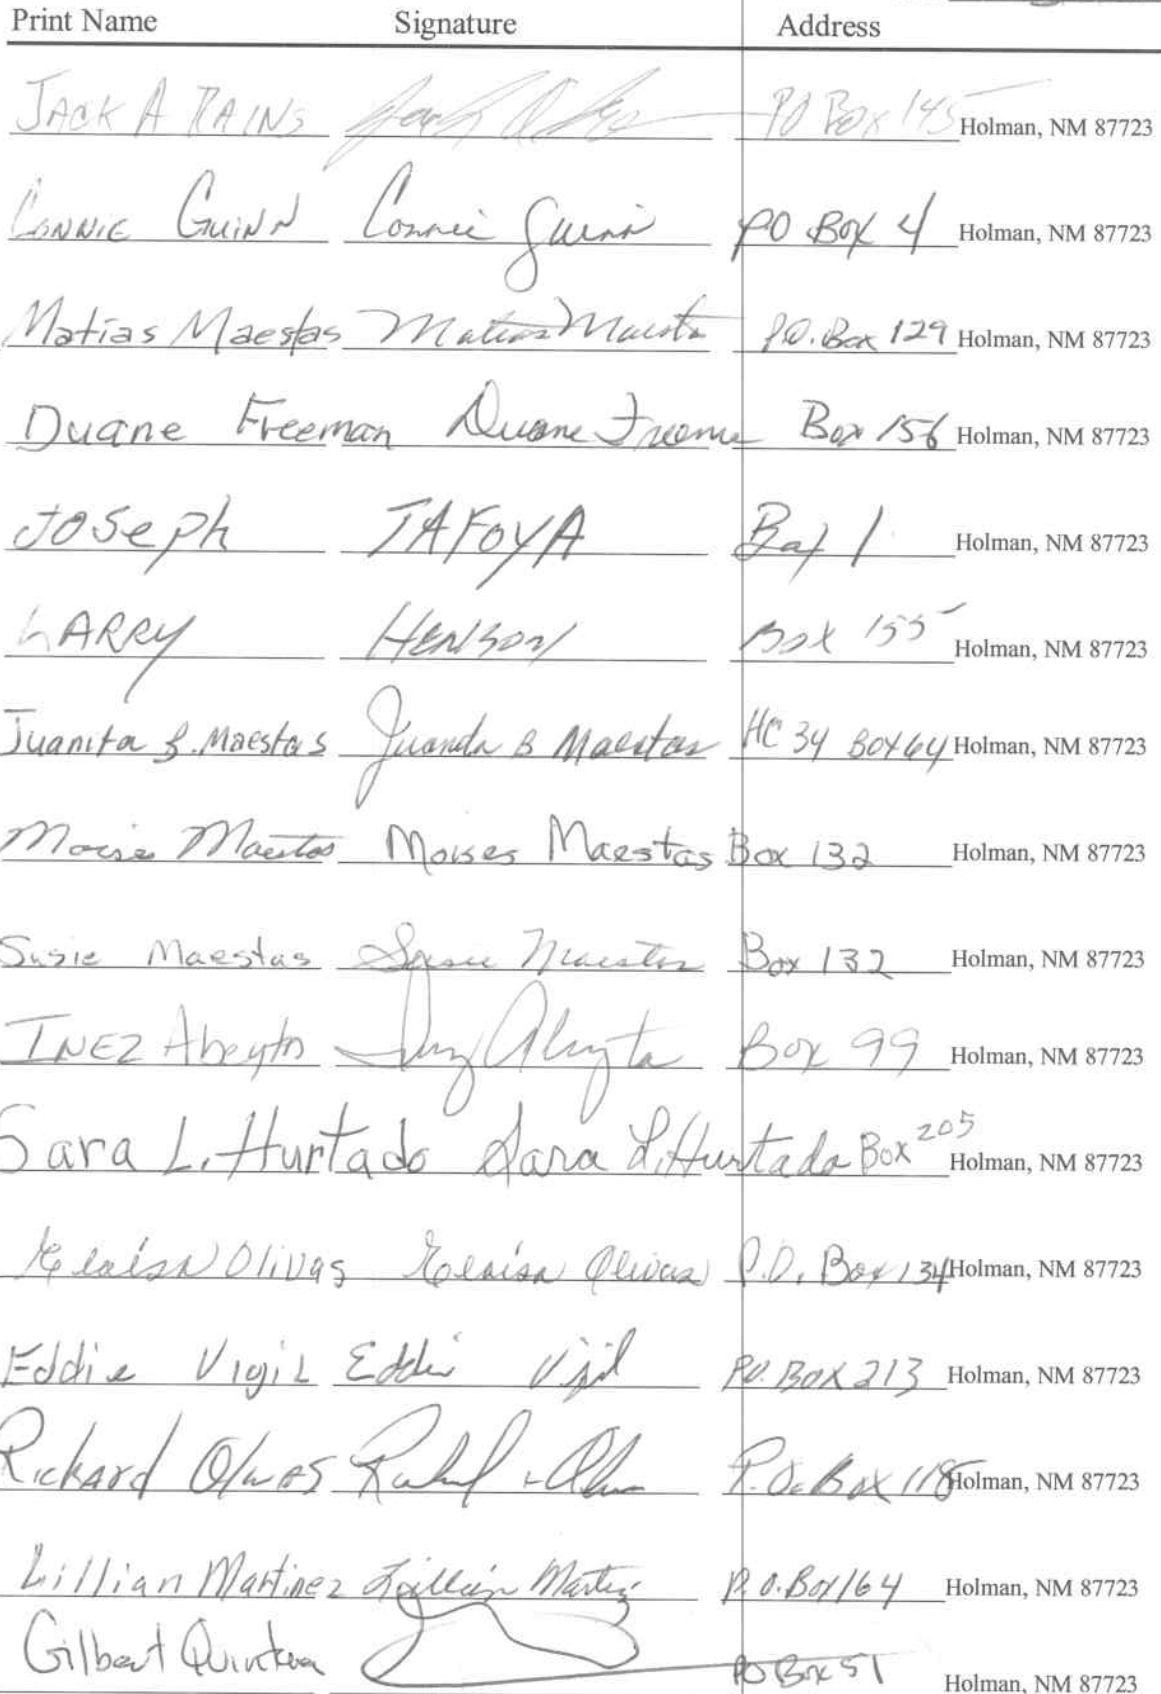 Print Name Signature Address
JACK A RAINS PO Box 145 Holman, NM 87723
CONNIE GUINN Connie Guinn PO Box 4 Holman, NM 87723
Matias Maestas Matias Maestas P.O. Box 129 Holman, NM 87723
Duane Freeman Duane Freeman Box 156 Holman, NM 87723
Joseph TAFOYA Box 1 Holman, NM 87723
LARRY HENSON Box 155 Holman, NM 87723
Juanita B. Maestas Juanita B Maestas HC 34 Box 64 Holman, NM 87723
Moises Maestas Moises Maestas Box 132 Holman, NM 87723
Susie Maestas Susie Maestas Box 132 Holman, NM 87723
INEZ Abeyta Inez Abeyta Box 99 Holman, NM 87723
Sara L. Hurtado Sara L. Hurtado Box 205 Holman, NM 87723
Eloisa Olivas Eloisa Olivas P.O. Box 134 Holman, NM 87723
Eddie Vigil Eddie Vigil P.O. BOX 213 Holman, NM 87723
Richard Olivas P.O. Box 118 Holman, NM 87723
Lillian Martinez Lillian Martinez P.O. Box 164 Holman, NM 87723
Gilbert Quintana PO Box 51 Holman, NM 87723